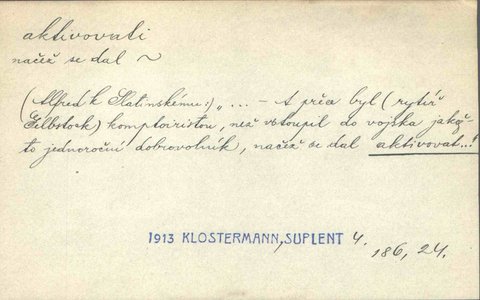 aktivovati
načež se dal ~
(Alfred k Slatinskému:) „... – A přece byl (rytíř
Gelbstock) komptoiristou, než vstoupil do vojska jakož-
to jednoroční dobrovolník, načež se dal aktivovat..."
1913 KLOSTERMANN, SUPLENT 4.
186, 24.